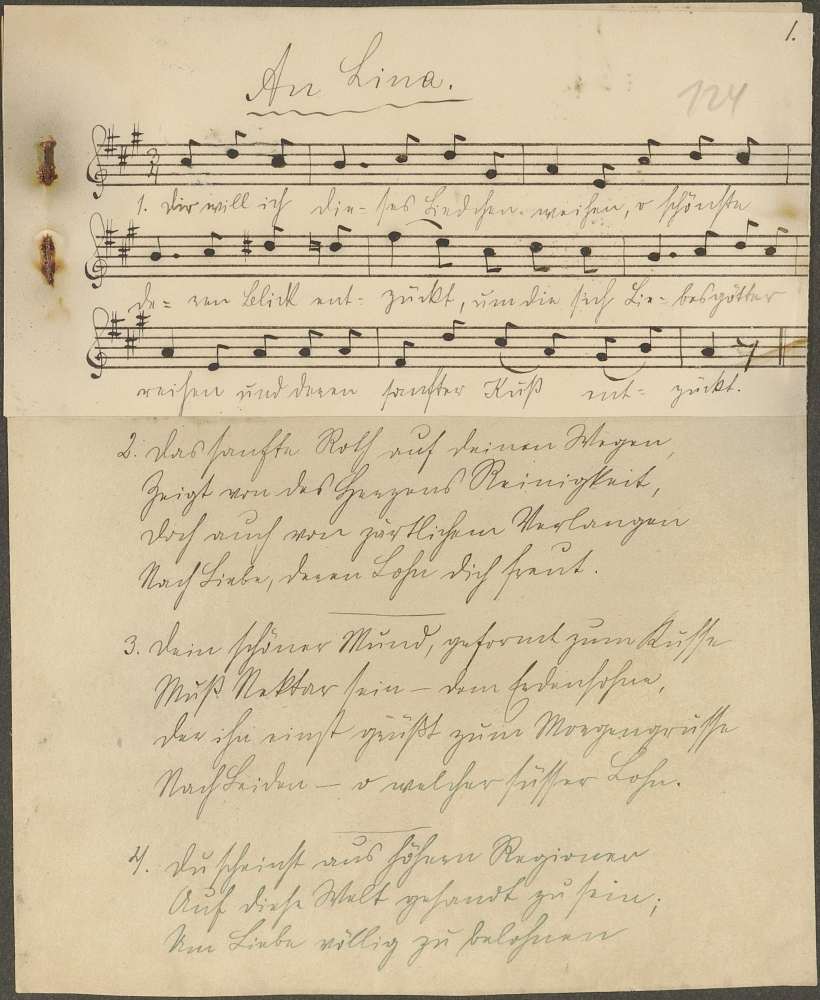 1.
An Lina.
124
1. Dir will ich die- ses Liedchen weihen, o schönste
de- ren Blick ent- zückt, um die sich Lie- besgötter
reihen und deren sanfter Kuß ent- zückt.
2. Das sanfte Roth auf deinen Wegen,
Zeigt von des Herzens Reinigkeit,
Doch auch von zärtlichem Verlangen
Nach Liebe, deren Lohn dich freut.
3. Dein schöner Mund, geformt zum Kusse
Muß Nektar sein – dem Erdensohne,
Der ihn einst grüßt zum Morgengrusse
Nach Leiden – o welcher süsser Lohn.
4. Du scheinst aus höhern Regionen
Auf diese Welt gesandt zu sein;
Um Liebe völlig zu belohnen